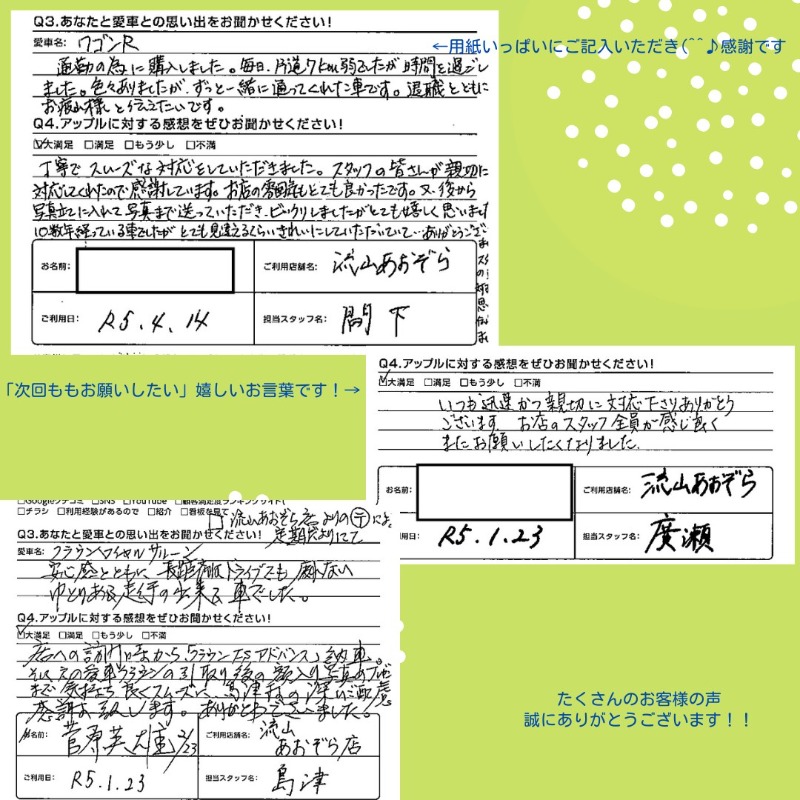 Q3.あなたと愛車との思い出をお聞かせください!
愛車名: ワゴンR
通勤の為に購入しました。毎日、片道7km弱でしたが時間を過ごし
ました。色々ありましたが、ずっと一緒に通ってくれた車です。退職とともに
お疲れ様と伝えたいです。
Q4.アップルに対する感想をぜひお聞かせください!
☑大満足 □満足 □もう少し □不満
丁寧でスムーズな対応をしていただきました。スタッフの皆さんが親切に
対応してくれたので感謝しています。お店の雰囲気もとても良かったです。又、後から
写真立てに入れて写真まで送っていただき、ビックリしましたがとても嬉しく思います
10数年経っている車でしたがとても見違えるくらいきれいにしていただいていて…ありがとうござ
お名前:
ご利用店舗名: 流山あおぞら
ご利用日: R5.4.14
担当スタッフ名: 間下
←用紙いっぱいにご記入いただき(^^♪感謝です
「次回ももお願いしたい」嬉しいお言葉です!→
Q4.アップルに対する感想をぜひお聞かせください!
☑大満足 □満足 □もう少し □不満
いつも迅速かつ親切に対応下さりありがとう
ございます。お店のスタッフ全員が感じ良く
またお願いしたくなりました。
お名前:
ご利用店舗名: 流山あおぞら
ご利用日: R5.1.23
担当スタッフ名: 廣瀬
□Googleクチコミ □SNS □YouTube □顧客満足度ランキングサイト(
□チラシ □利用経験があるので □紹介 □看板を見て
流山あおぞら店よりの〒による
定期便よりにて
Q3.あなたと愛車との思い出をお聞かせください!
愛車名: クラウンロイヤルサルーン
安心感とともに長距離ドライブも疲れない
ゆとりある走行の出来る車でした。
Q4.アップルに対する感想をぜひお聞かせください!
☑大満足 □満足 □もう少し □不満
店への訪れ時から「クラウンRSアドバンス」納車。
感謝致します。ありがとうございました。
お名前: 菅原英雄 2/23
ご利用店舗名: 流山
あおぞら店
ご利用日: R5.1.23
担当スタッフ名: 島津
たくさんのお客様の声
誠にありがとうございます!!